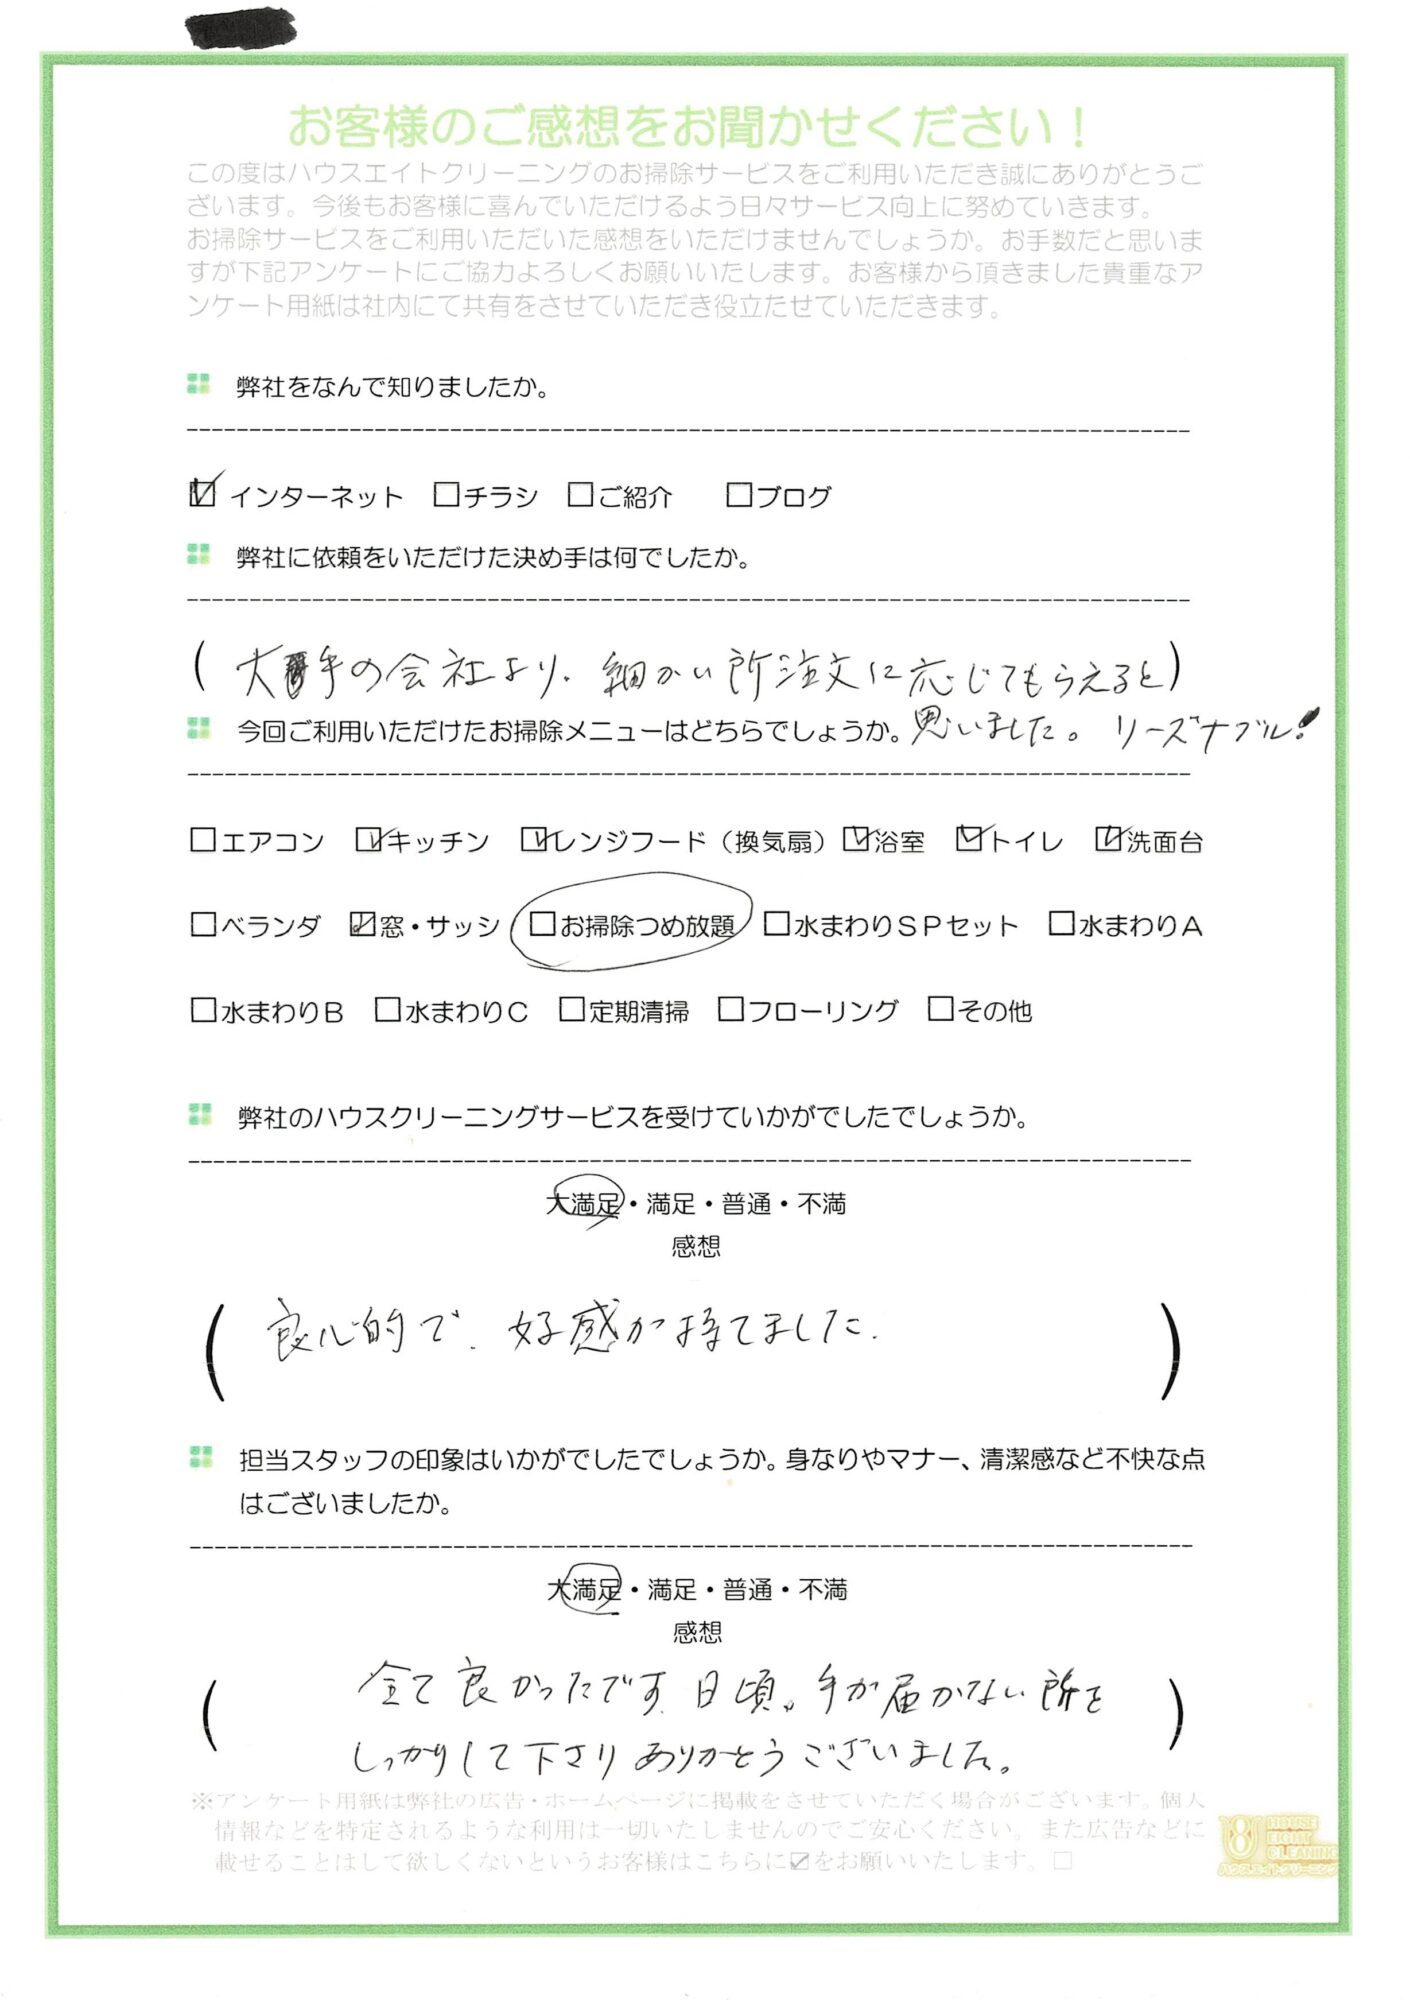 お客様のご感想をお聞かせください！
この度はハウスエイトクリーニングのお掃除サービスをご利用いただき誠にありがとうご
ざいます。今後もお客様に喜んでいただけるよう日々サービス向上に努めていきます。
お掃除サービスをご利用いただいた感想をいただけませんでしょうか。お手数だと思いま
すが下記アンケートにご協力よろしくお願いいたします。お客様から頂きました貴重なア
ンケート用紙は社内にて共有をさせていただき役立たせていただきます。
弊社をなんで知りましたか。
☑インターネット □チラシ □ご紹介 □ブログ
弊社に依頼をいただけた決め手は何でしたか。
（大手の会社より、細かい所注文に応じてもらえると）
今回ご利用いただけたお掃除メニューはどちらでしょうか。思いました。 リーズナブル！
□エアコン ☑キッチン ☑レンジフード（換気扇）☑浴室 ☑トイレ ☑洗面台
□ベランダ ☑窓・サッシ □お掃除つめ放題 □水まわりＳＰセット □水まわりＡ
□水まわりＢ □水まわりＣ □定期清掃 □フローリング □その他
弊社のハウスクリーニングサービスを受けていかがでしたでしょうか。
大満足・満足・普通・不満
感想
（良心的で、好感が持てました.）
担当スタッフの印象はいかがでしたでしょうか。身なりやマナー、清潔感など不快な点
はございましたか。
大満足・満足・普通・不満
感想
（全て良かったです。日頃。手が届かない所を）
しっかりして下さりありがとうございました。
※アンケート用紙は弊社の広告・ホームページに掲載をさせていただく場合がございます。個人
情報などを特定されるような利用は一切いたしませんのでご安心ください。また広告などに
載せることはして欲しくないというお客様はこちらに☑をお願いいたします。□
8 HOUSE
EIGHT
CLEANING
ハウスエイトクリーニング